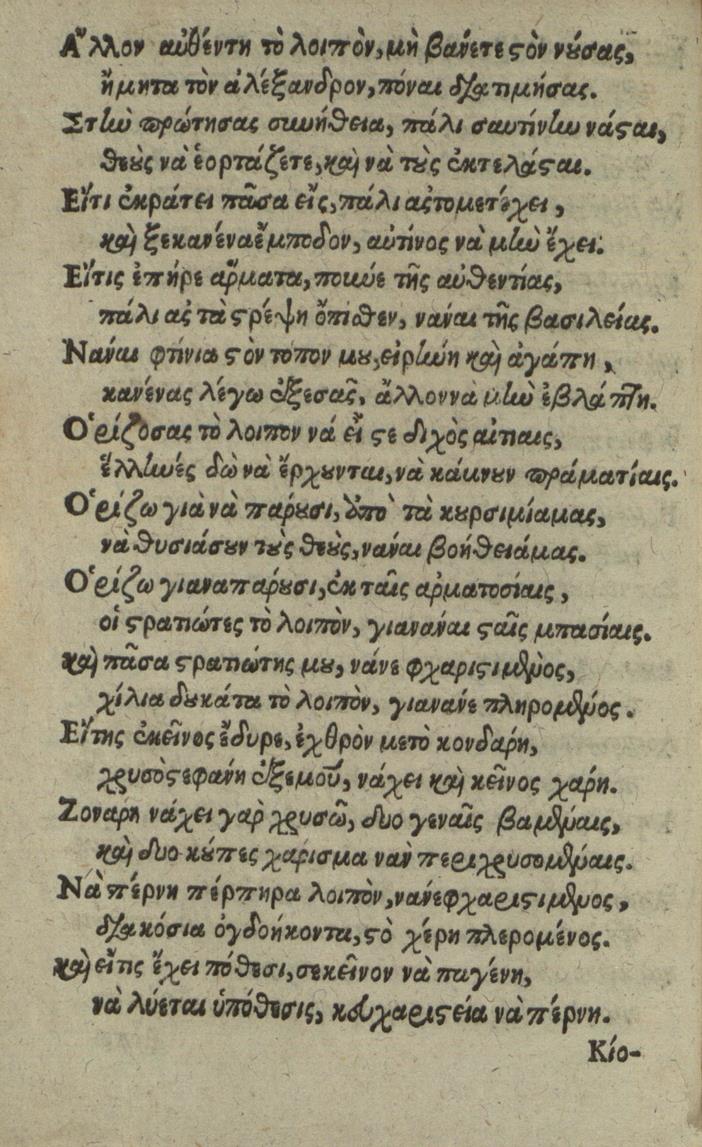 Ἄλλον αὐθέντη τὸ λοιπὸν, μὴ βάνετε στὸν νούσας,
ἤμητα τὸν ἀλέξανδρον, πόναι διατιμήσας.
Στὴν πρώτησας συνήθεια, πάλι σαυτίνην νάσται,
θεοὺς νὰ ἑορτάζετε, καὶ νὰ τοὺς ἐκτελάσται.
Εἴτι ἐκράτει πᾶσα εἷς, πάλι ἀςτομετέχει,
καὶ ξεκανέναἔμποδον, αὐτίνος νὰ μὴν ἔχει.
Εἴτις ἐπῆρε ἄρματα, ποκύε τῆς αὐθεντίας,
πάλι ἀς τὰ στρέψη ὄπισθεν, νάναι τῆς βασιλείας.
Νάναι φτίνια στὸν τόπον μου, εἰρήνη καὶ ἀγάπη,
κανένας λέγω ἐξεσᾶς, ἄλλοννὰ μὴν ἐβλάπτη.
Ὁρίζοσας τὸ λοιπον νά εἶστε διχὸς αἰτιαις,
ἕλληνές δὼ νὰ ἔρχουνται, νὰ κάμνουν πράματίαις.
Ὁρίζω γιὰ νὰ παρουσι, ἀπὸ τὰ κουρσιμίαμας,
νὰ θυσιάσουν τοὺς θεοὺς, νάναι βοήθειάμας.
Ὁρίζω γιαναπάρουσι, ἐκ ταῖς ἀρματοσίαις,
οἱ στρατιώτες τὸ λοιπὸν, γιανάναι σταῖς μπασίαις.
καὶ πᾶσα στρατιώτης μου, νάνε φχαριστιμένος,
χίλια δουκάτα τὸ λοιπὸν, γιανάνε πληρομένος.
Εἴτης ἐκεῖνος ἔδυρε, ἐχθρὸν μετὸ κονδάρη,
χρυσὸστεφανη ἐξεμοῦ, νάχει καὶ κεῖνος χάρη.
Ζονάρη νάχει γὰρ χρυσῶ, δυο γεναῖς βαμέναις,
καὶ δυο κούπες χάρισμα ναν περιχρυσομέναις.
Νὰ πέρνη πέρπηρα λοιπὸν, νάνεφχαριστιμένος,
διακόσια ὀγδοήκοντα, στὸ χέρη πλερομένος.
καὶ εἴτις ἔχει πόθεσι, σεκεῖνον νὰ παγένη,
νὰ λύεται ὑπόθεσις, κευχαριστεία νὰ πέρνη.
Κίο-